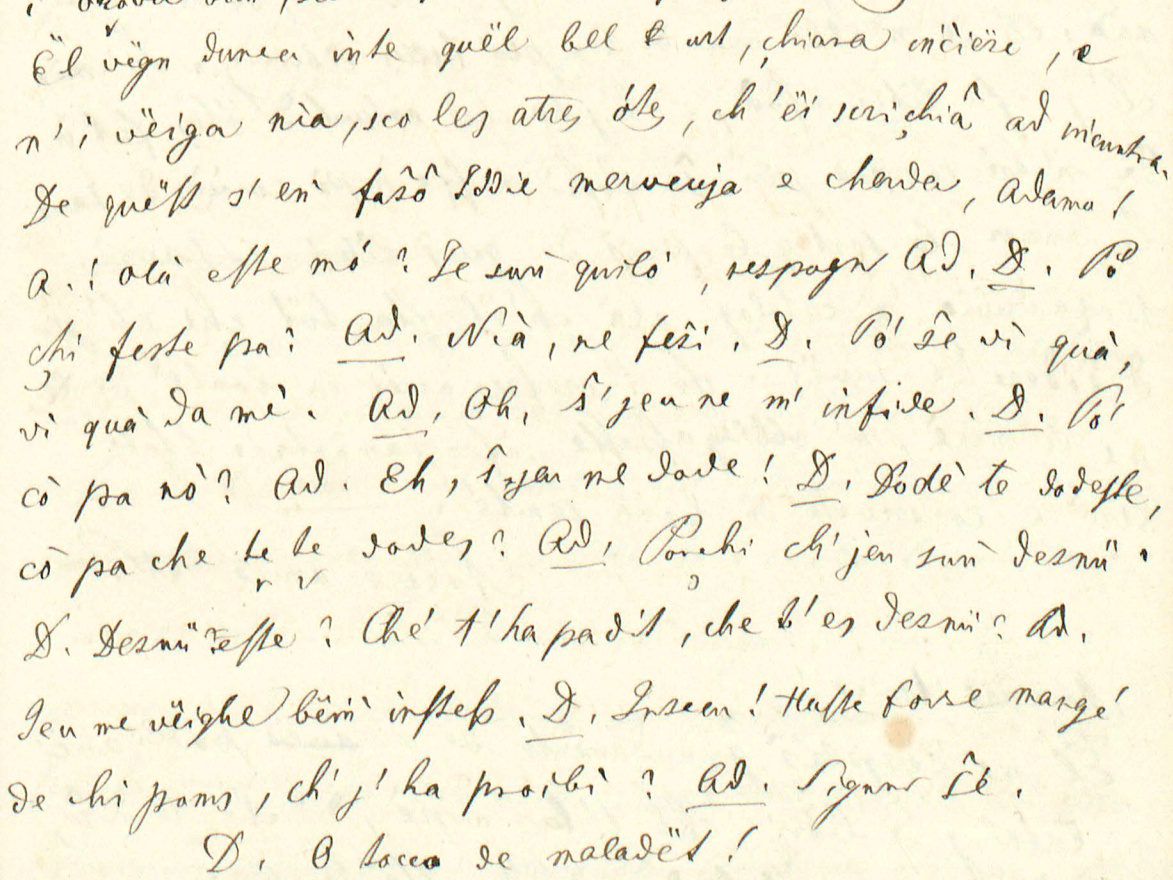 Ël vëgn dunca inte quël bell urt, chiara incëre, e
n' i vëiga nia, sco les atres ôtes, ch' ëi scrichiâ ad incuntra.
De quëst s' en fasô Iddie merveuja e cherda, Adamo!
A.! olà este mó? Ie suǹ quiló, respogn Ad. D. Pó
chi feste pa? Ad. Nià, ne feśi. D. Pó śe vì quà,
vì quà da mè. Ad. Oh, ŝ' jeu ne m' infide. D. Pó
cò pa nò? Ad. Eh, ŝ' jeu me dode! D. Dodè te dodeste,
cò pa che te te dodes? Ad. Porchi ch' jeu suǹ desnü.
D. Desnü este? Ché t' ha pa dit, che t' es desnü? Ad.
Jeu me vëighe bëiǹ instess. D. Inseen! Haste forse mangé
de chi poms, ch' j' ha proibì? Ad. Signur ŝé.
D. O tocco de maladët!